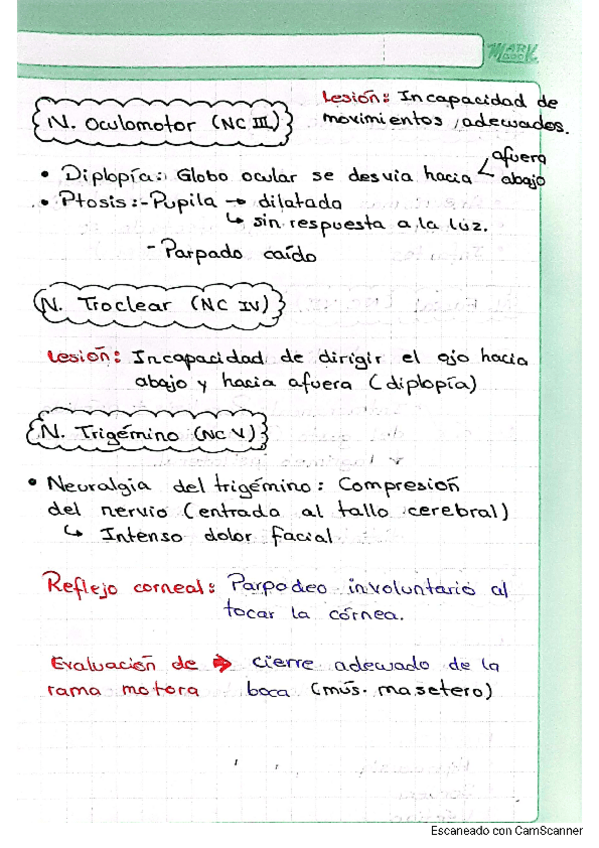 MARK
Lesión: Incapacidad de
movimientos adecuados.
N. Oculomotor (NC III)
afuera
• Diplopía: Globo ocular se desvia hacia
abajo
• Ptosis: - Pupila → dilatada
↳ sin respuesta a la luz.
- Parpado caído
N. Troclear (NC IV)
Lesión: Incapacidad de dirigir el ojo hacia
abajo y hacia afuera (diplopía)
N. Trigémino (NC V)
• Neuralgia del trigémino: Compresión
del nervio (entrada al tallo cerebral)
↳ Intenso dolor facial
Reflejo corneal: Parpadeo involuntario al
tocar la córnea.
Evaluación de → cierre adecuado de la
rama motora boca (mús. masetero)
Escaneado con CamScanner